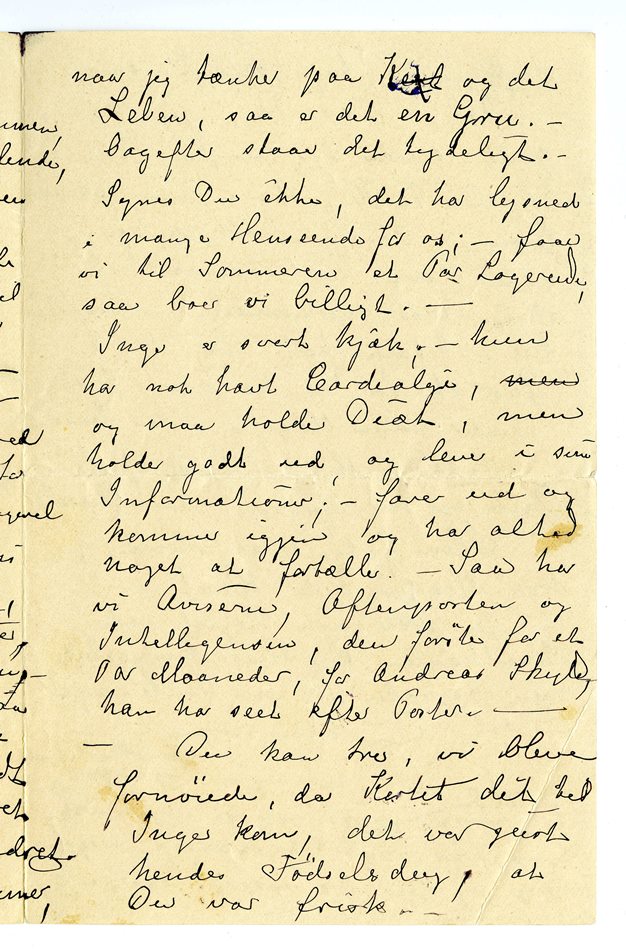 naar jeg tænker paa og det
Leben, saa er det en Gru. –
bagefter staar det tydeligt. –
Synes Du ikke, det har lysned
i mange Henseender for os; – faar
vi til Sommeren et Par Logerende,
saa boer vi billigt. —
Inge er svært kjæk, – hun
har nok havt Cardialgi, men
og maa holde Diæt, men
holder godt ud og lever i sine
Informationer; – farer ud og
kommer igjen og har altid
noget at fortælle. – Saa har
vi Aviserne, Aftenposten og
Intellegensen, den første for et
Par Maaneder, for Andreas Skyld,
han har seet efter Poster. —
– Du kan tro, vi bleve
fornøiede, da Kortet det til
Inger kom, det var just
hendes Födselsdag, at
Du var frisk. –
ed
for
et
dret